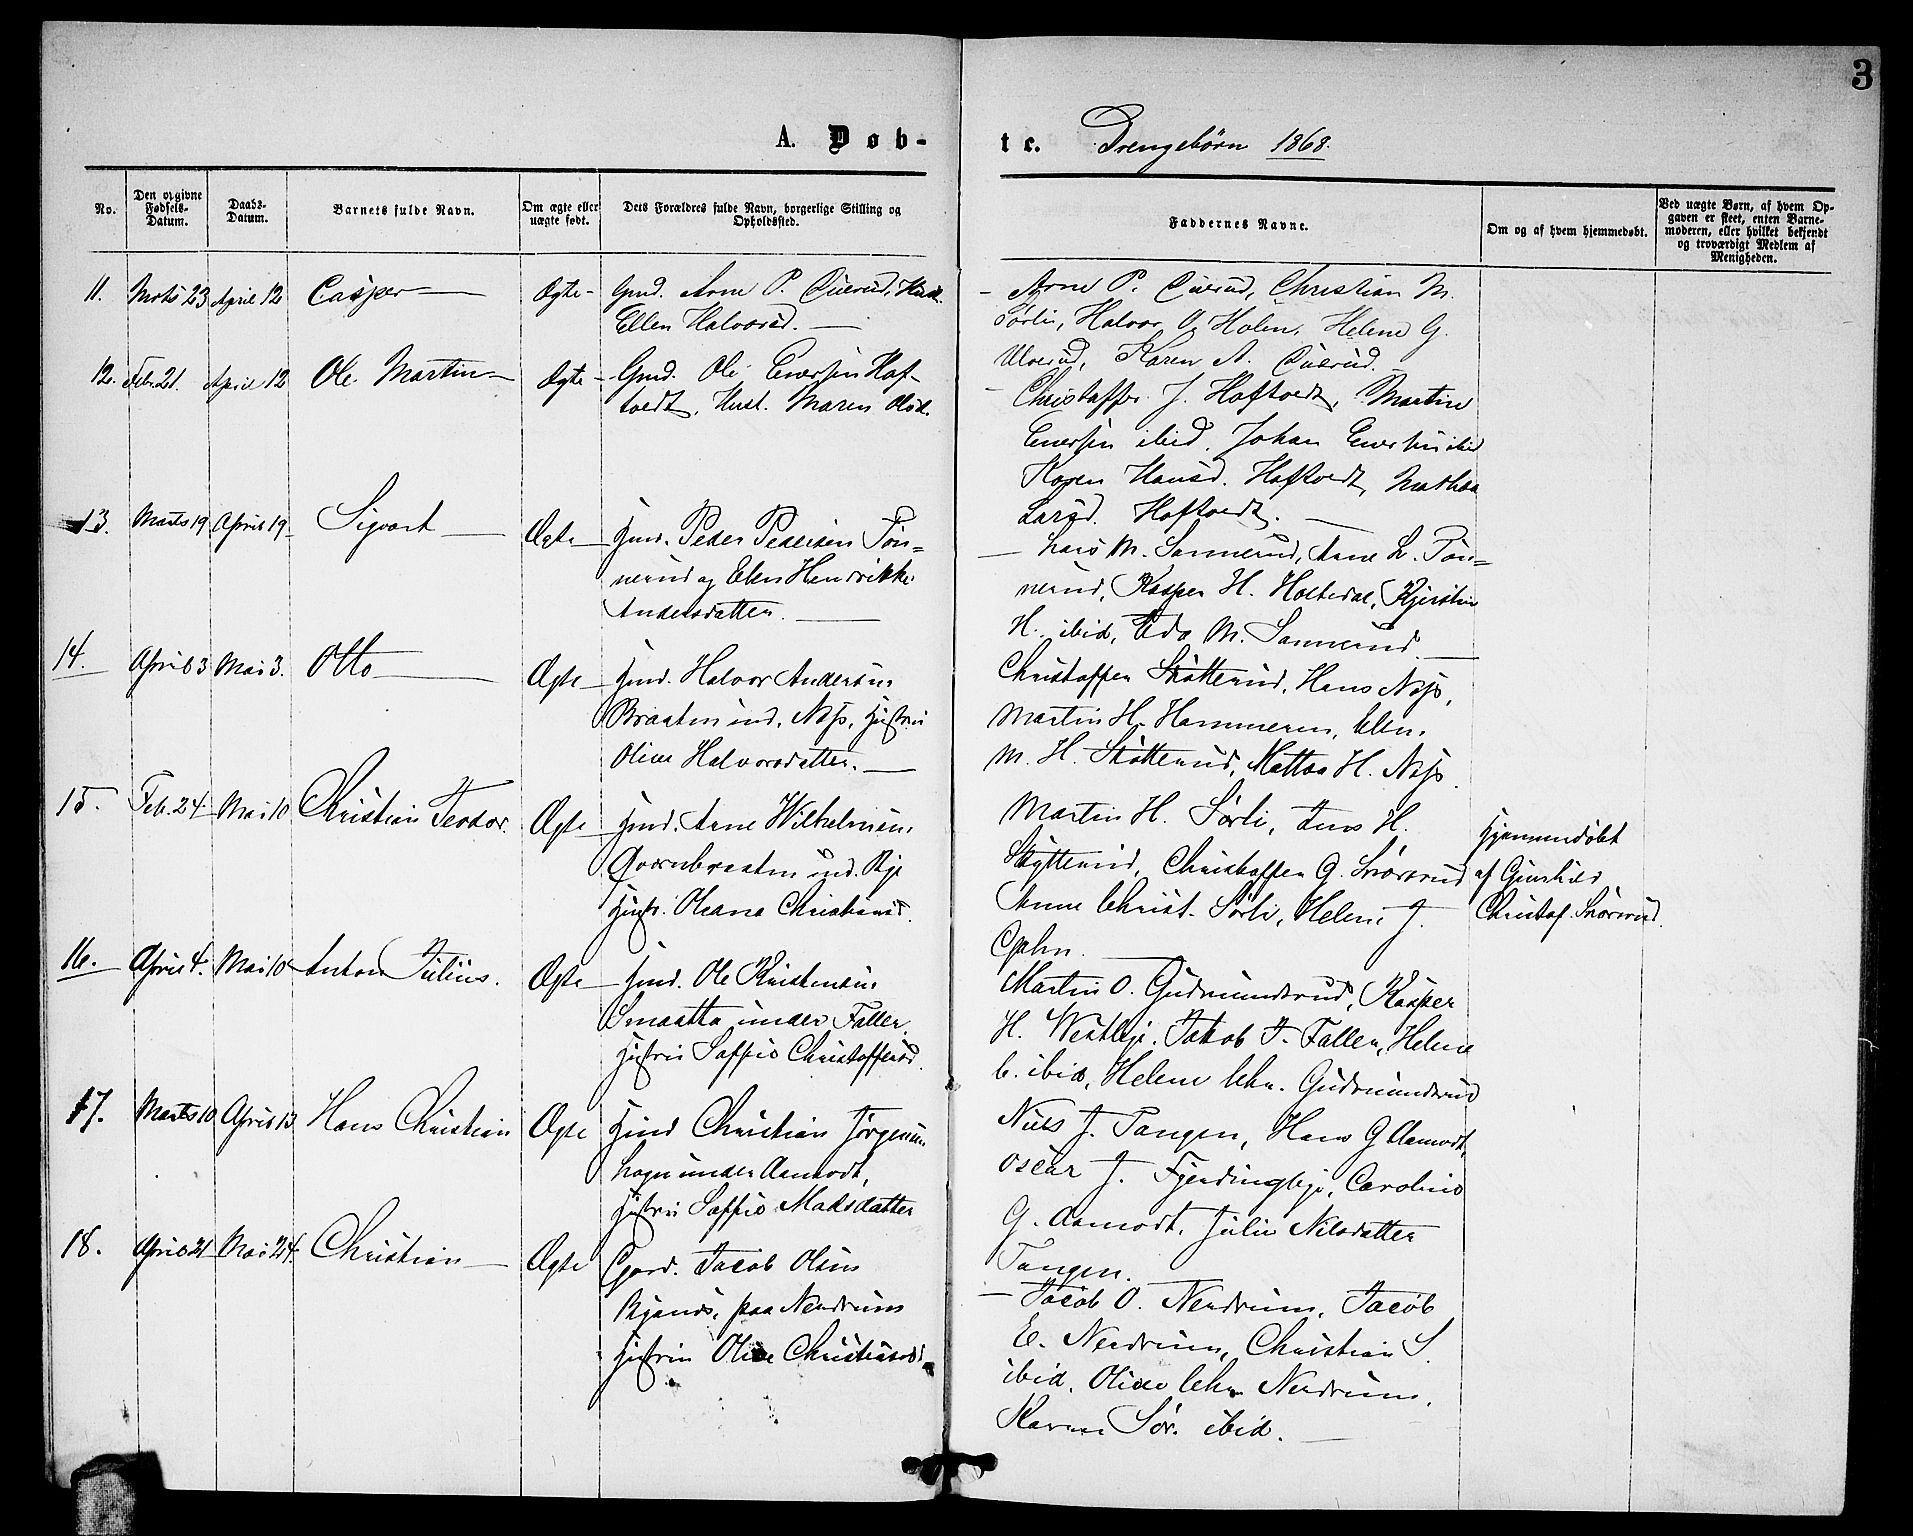 3
A. Døb-
te. Drengebørn 1868.
No.
Den opgivne Fødsels-Datum.
Daabs-Datum.
Barnets fulde Navn.
Om ægte eller uægte født.
Dets Forældres fulde Navn, borgerlige Stilling og Opholdssted.
Faddernes Navne.
Om og af hvem hjemmedøbt.
Ved uægte Børn, af hvem Op-
gaven er skeet, enten Barne-
moderen, eller hvilket bekjendt
og troværdigt Medlem af
Menigheden.
11. Mrts 23 April 12 Casper Ægte Gmd. Arne P. Hust.
Ellen Halvorsd.
Arne P. Christian M.
Sørli, Halvor O. Holen, Helene G.
Ulverud, Karen A.
12. Feb. 21. April 12 Ole Martin Ægte Gmd. Ole Enersen Haf-
toedt, Hust. Maren Olsd.
Christoffer J. Haftoedt, Martin
Enersen ibid, Johan Enersen ibid
Karen Hansd. Haftoedt, Mathea
Larsd. Haftoedt.
13. Marts 19 April 19 Sigvart Ægte Hmd. Peder Pedersen Tøn-
nerud og Elen Henrikke
Andersdatter.
Lars M. Sannerud, Arne L. Tøn-
nerud, Kasper H. Holtedal, Kjerstin
H. ibid, Eda M. Sannerud.
14. April 3 Mai 3. Otto Ægte Hmd. Halvor Andersen
Braaten und. Næs, Hustru
Oline Halvorsdatter.
Christoffer Skøtterud, Hans Næs,
Martin H. Hammeren, Elen
M. H. Skøtterud, Mattea H. Næs.
15. Feb. 24. Mai 10 Christian Teodor. Ægte Hmd. Arne Wilhelmsen
Qvernbraaten und. Bje
Hustr. Oleana Christiansd.
Martin H. Sørli, Jens H.
Skytterud, Christoffer G. Snorerud
Anne Christ. Sørli, Helene J.
Hjemmedøbt
af Gunhild
Christof. Snorerud.
16. April 4. Mai 10 Anton Julius. Ægte Hmd. Ole Kristensen
Smaatta under Faller
Hustru Soffie Christoffersd.
Martin O. Gudmundsrud, Kasper
H. Westbye, Jakob J. Faller, Helene
C. ibid, Helene Chr. Gudmundsrud
17. Marts 10 April 13 Hans Christian Ægte Hmd Christian Jørgensen
Hagen under Aamodt,
Hustru Soffie Madsdatter
Niels J. Tangen, Hans G Aamodt,
Oscar J. Fjerdingbye, Caroline
G. Aamodt, Julie Nilsdatter
Tangen.
18. April 21 Mai 24. Christian Ægte Gaard. Jacob Olsen
Bjønnes, paa Nerdrum
Hustru Oline Christiansd.
Jacob O. Nerdrum, Jacob
E. Nerdrum, Christian S.
ibid, Oline Chr. Nerdrum,
Karen Sør. ibid.